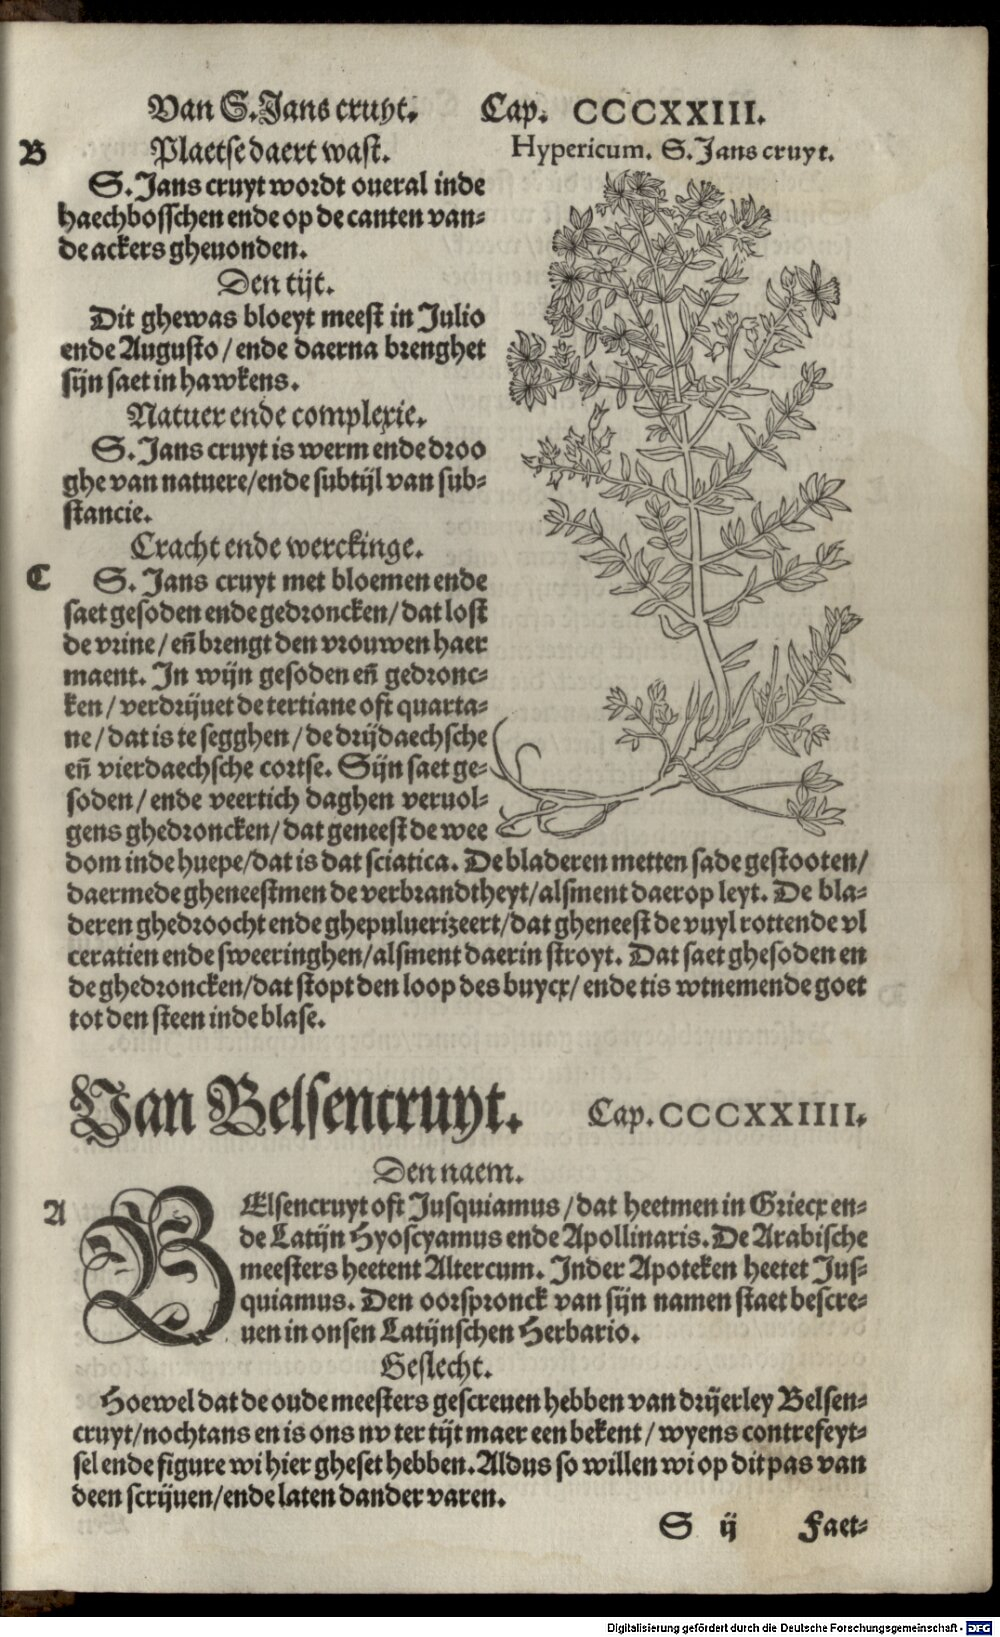 Van S. Jans cruyt. Cap. CCCXXIII.
B Plaetse daert wast.
Hypericum. S. Jans cruyt.
S. Jans cruyt wordt oueral inde
haechbosschen ende op de canten van-
de ackers gheuonden.
Den tijt.
Dit ghewas bloeyt meest in Julio
ende Augusto / ende daerna brenghet
sijn saet in hawkens.
Natuer ende complexie.
S. Jans cruyt is werm ende droo
ghe van natuere/ende subtijl van sub-
stancie.
Cracht ende werckinge.
C S. Jans cruyt met bloemen ende
saet gesoden ende gedroncken/ dat lost
de vrine / eñ brengt den vrouwen haer
maent. In wijn gesoden eñ gedronc-
ken / verdrijuet de tertiane oft quarta-
ne / dat is te segghen / de drijdaechsche
eñ vierdaechsche cortse. Sijn saet ge-
soden / ende veertich daghen veruol-
gens ghedroncken/ dat geneest de wee
dom inde huepe/dat is dat sciatica. De bladeren metten sade gestooten/
daermede gheneestmen de verbrandtheyt/alsment daerop leyt. De bla-
deren ghedroocht ende ghepuluerizeert/dat gheneest de vuyl rottende vl
ceratien ende sweeringhen/alsment daerin stroyt. Dat saet ghesoden en
de ghedroncken/dat stopt den loop des buycx/ ende tis wtnemende goet
tot den steen inde blase.
Van Belsencruyt. Cap. CCCXXIIII.
Den naem.
A BElsencruyt oft Jusquiamus / dat heetmen in Griecx en-
de Latijn Hyoscyamus ende Apollinaris. De Arabische
meesters heetent Altercum. Inder Apoteken heetet Jus-
quiamus. Den oorspronck van sijn namen staet bescre-
uen in onsen Latijnschen Herbario.
Geslecht.
Hoewel dat de oude meesters gescreuen hebben van drijerley Belsen-
cruyt/nochtans en is ons nv ter tijt maer een bekent / wyens contrefeyt-
sel ende figure wi hier gheset hebben. Aldus so willen wi op dit pas van
deen scrijuen/ende laten dander varen.
S ij Faet-
Digitalisierung gefördert durch die Deutsche Forschungsgemeinschaft - DFG